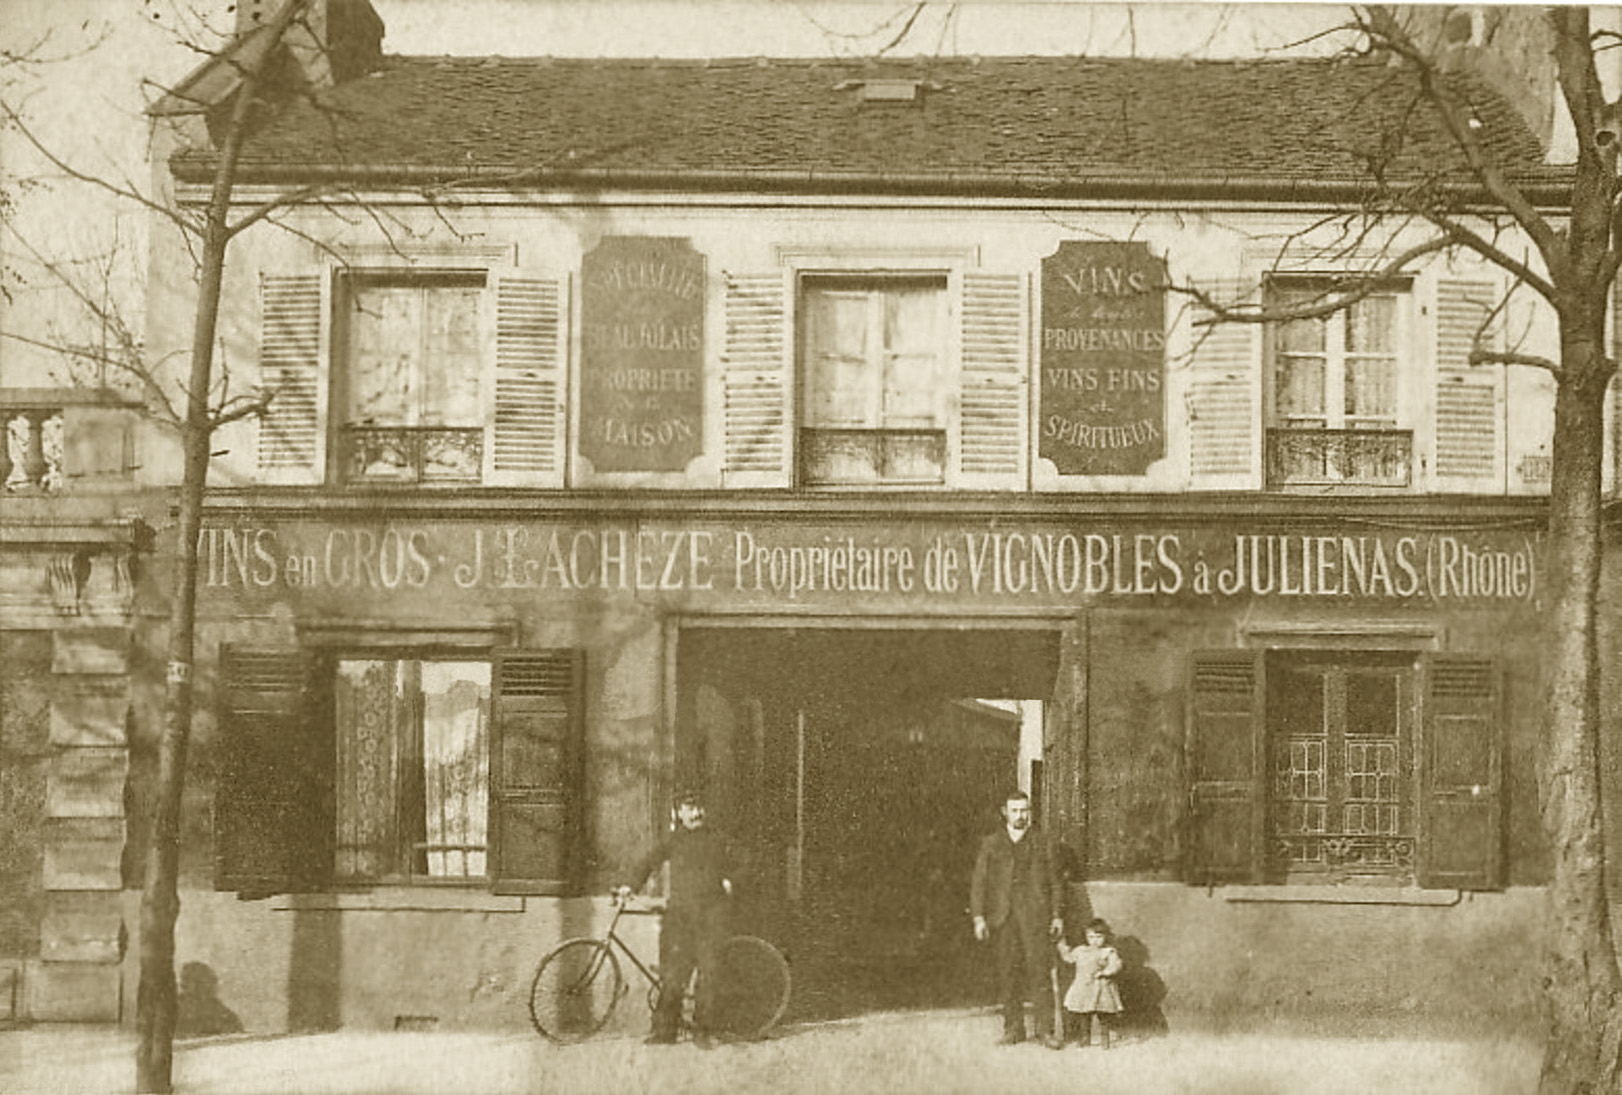 SPÉCIALITÉ
BEAUJOLAIS
PROPRIÉTÉ
MAISON
VINS
de toutes
PROVENANCES
VINS FINS
et
SPIRITUEUX
VINS en GROS · J. LACHEZE Propriétaire de VIGNOBLES à JULIENAS. (Rhône)